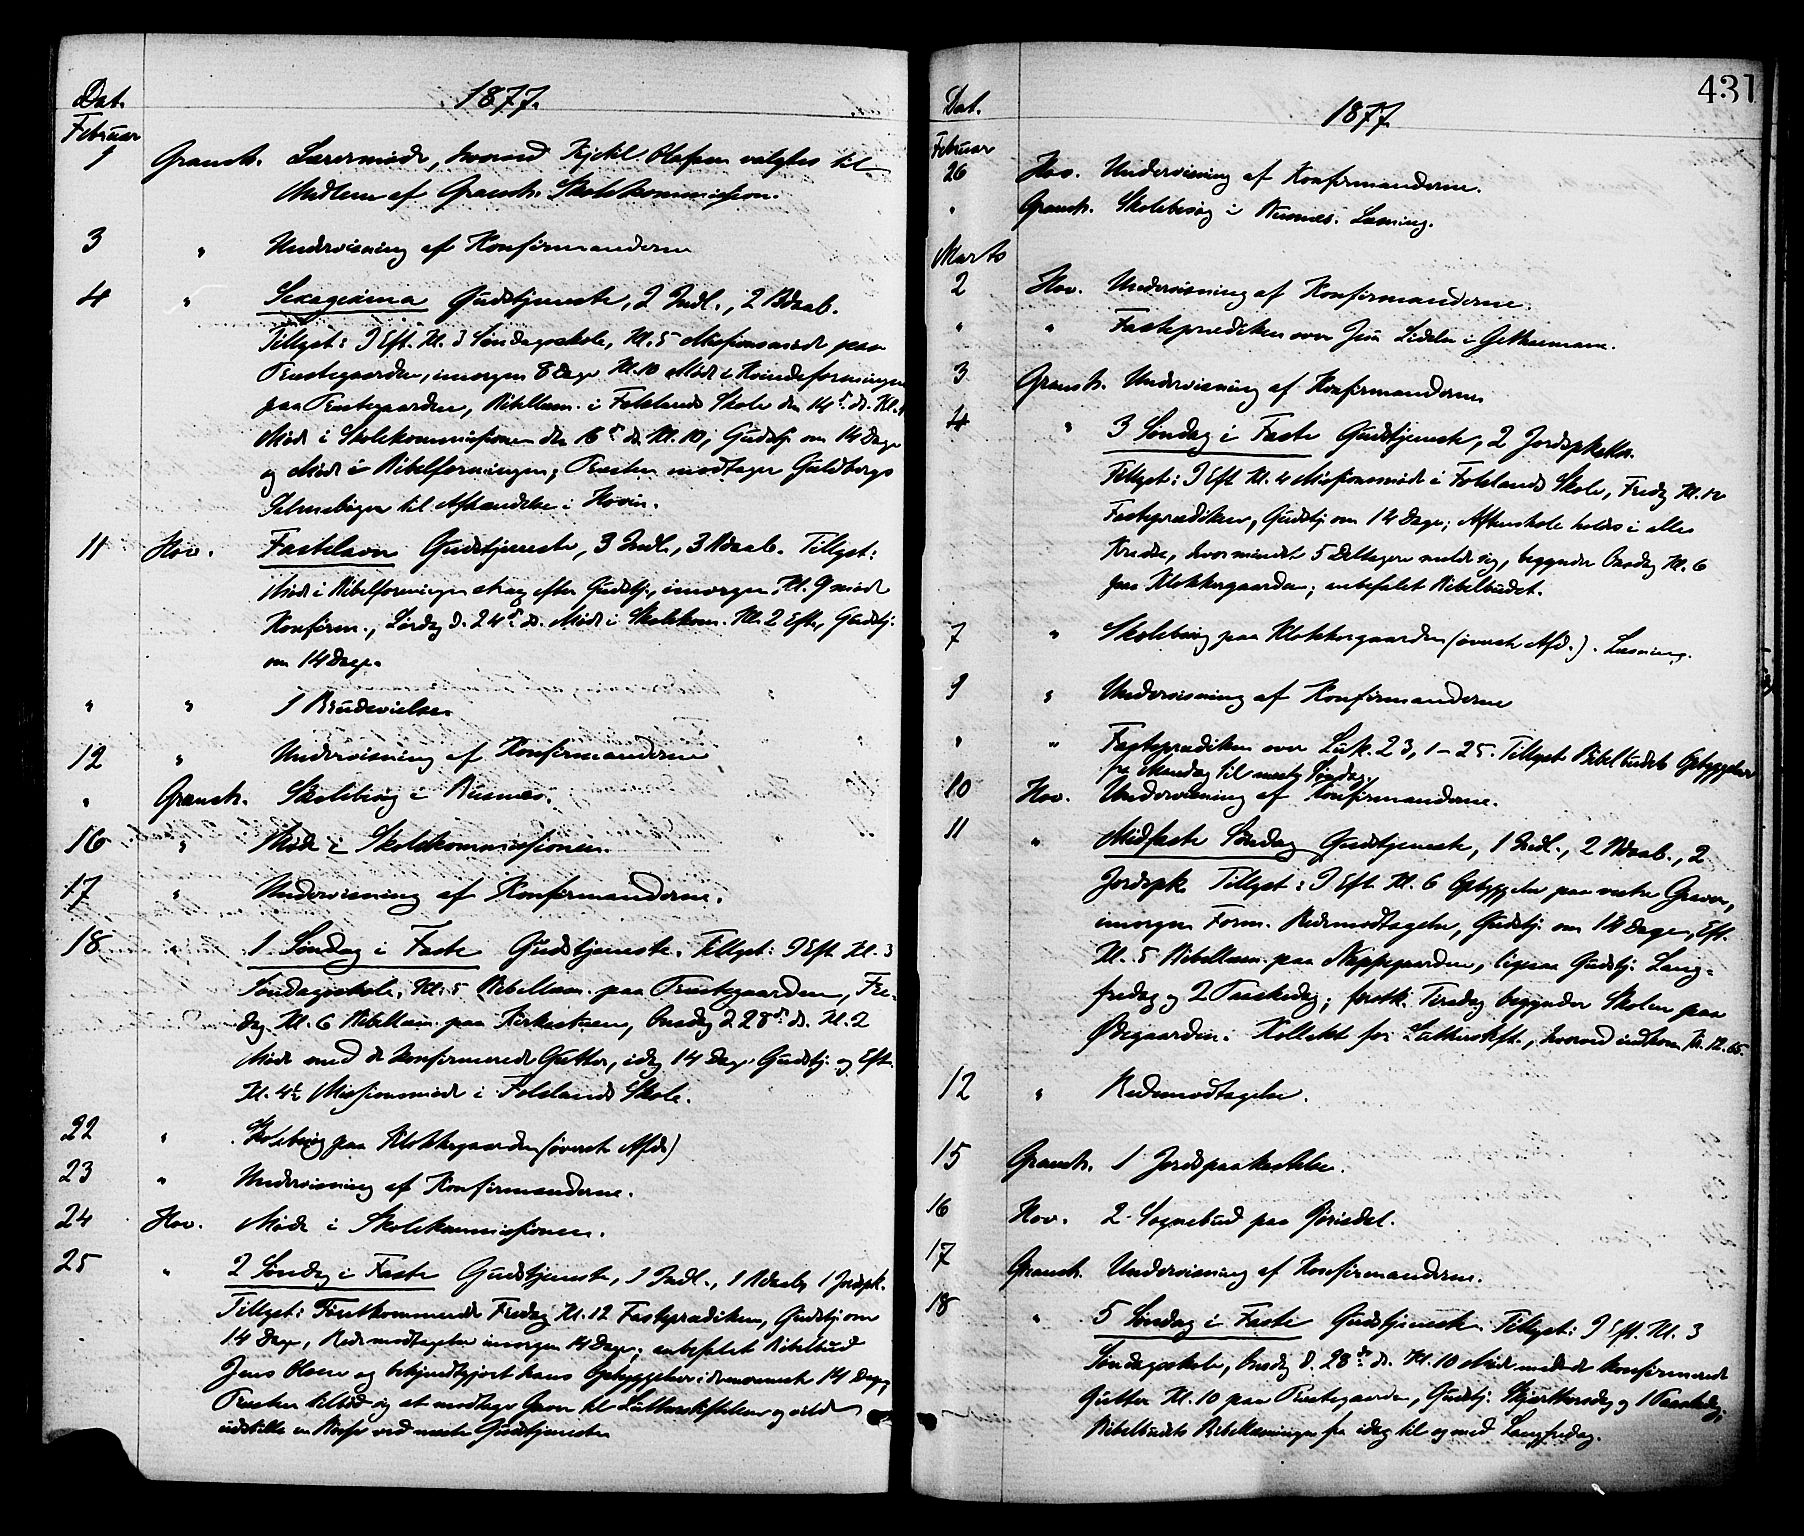 Dat. 1877.
Februar
1 Gransh. Lærermøde, hvorved Kjetil Olafsen valgtes til
Medlem af Gransh. Skolekommission.
3 " Undervisning af Konfirmanderne
4 " Sexagesima Gudstjeneste, 2 Indl., 2 Bdaab.
Tillyst: I Eft. Kl. 3 Søndagsskole, Kl. 5 Missionsmøde paa
Prestegaarden, imorgen 8 Dage Kl. 10 Møde i Kvindeforeningen
paa Prestegaarden, Bibellæsn. i Folslands Skole den 14de ds. Kl.
Møde i Skolekommissionen den 16de ds. Kl. 10, Gudstj. om 14 Dage
og Møde i Bibelforeningen; Presten modtager Guldbergs
til Afhændelse i Hovin.
11 Hov. Fastelavn Gudstjeneste, 3 Indl., 3 Bdaab. Tillyst:
Møde i Bibelforeningen strax efter Gudstj., imorgen Kl. 9 møde
Konfirm., Lørdag d. 24de ds. Møde i Skolekom. Kl. 2 Eft., Gudstj.
om 14 Dage.
" " 1 Brudevielse
12 " Undervisning af Konfirmanderne
" Gransh. Skolebesøg i Busnes.
16 " Møde i Skolekommissionen.
17 " Undervisning af Konfirmanderne.
18 " 1 Søndag i Faste Gudstjeneste. Tillyst: I Eft. Kl. 3
Søndagsskole, Kl. 5 Bibellæsn. paa Prestegaarden, Fre-
dag Kl. 6 Bibellæsn. paa Kirkestuen, Onsdag d. 28de ds. Kl. 2
Møde med de konfirmerede Gutter, idag 14 Dage Gudstj. og Eft.
Kl. 4½ Missionsmøde i Folslands Skole.
22 " Skolebesøg paa Klokkergaarden (øverste Afd.)
23 " Undervisning af Konfirmanderne.
24 Hov. Møde i Skolekommissionen.
25 " 2 Søndag i Faste Gudstjeneste, 1 Indl., 1 Bdaab, 1 Jordspk.
Tillyst: Førstkommende Fredag Kl. 12 Fasteprædiken, Gudstj. om
14 Dage, Redemodtagelse imorgen 14 Dage; anbefalet Bibelbud
Jens Olsen og bekjendtgjort hans Opbyggelser i de nærmeste 14 Dage;
Presten tilbød sig at modtage Gaver til Lutherstiftelsen og vilde
udstille en Bøsse ved næste Gudstjeneste
431
Dat. 1877.
Februar
26 Hov. Undervisning af Konfirmanderne.
" Gransh. Skolebesøg i Busnes. Læsning.
Marts
2 Hov. Undervisning af Konfirmanderne.
" " Fasteprædiken over Jesu Lidelse i Gethsemane.
3 Gransh. Undervisning af Konfirmanderne
4 " 3 Søndag i Faste Gudstjeneste, 2 Jordspkelser.
Tillyst: I Eft. Kl. 4 Missionsmøde i Folslands Skole, Fredag Kl. 12
Fasteprædiken, Gudstj. om 14 Dage; Aftenskole holdes i alle
Kredse, hvor mindst 5 Deltagere melde sig, begynder Onsdag Kl. 6
paa Klokkergaarden; anbefalet Bibelbudet.
7 " Skolebesøg paa Klokkergaarden (øverste Afd.). Læsning.
9 " Undervisning af Konfirmanderne
" " Fasteprædiken over Luk. 23, 1–25. Tillyst Bibelbudets Opbyggelser
fra Mandag til næste Søndag.
10 Hov. Undervisning af Konfirmanderne.
11 " Midfaste Søndag Gudstjeneste, 1 Indl., 2 Bdaab., 2
Jordspk. Tillyst: I Eft. Kl. 6 Opbyggelse paa vestre Graver,
imorgen Form. Redemodtagelse, Gudstj. om 14 Dage, Eft.
Kl. 5 Bibellæsn. paa Næppgaarden, ligesaa Gudstj. Lang-
fredag og 2 Paaskedag; førstk. Tirsdag begynder Skolen paa
Ødegaarden. Kollekt for Lutherstift., hvorved indkom Kr. 12.65.
12 " Redemodtagelse.
15 Gransh. 1 Jordspaakastelse.
16 Hov. 2 Sognebud paa Gjørisdal.
17 Gransh. Undervisning af Konfirmanderne.
18 " 5 Søndag i Faste Gudstjeneste. Tillyst: I Eft. Kl. 3
Søndagsskole, Onsdag d. 28de ds. Kl. 10 Møde med de konfirmerede
Gutter Kl. 10 paa Prestegaarden, Gudstj. Skjærthorsdag og 1 Paaskedag;
Bibelbudets Bibellæsninger fra idag til og med Langfredag.